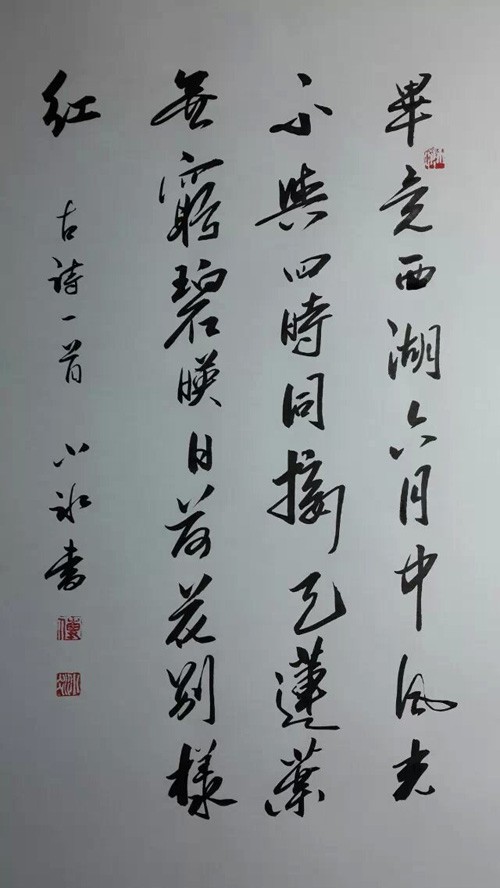 畢竟西湖六月中風光
不與四時同接天蓮葉
無窮碧暎日荷花別樣
紅 古詩一首 小冰書